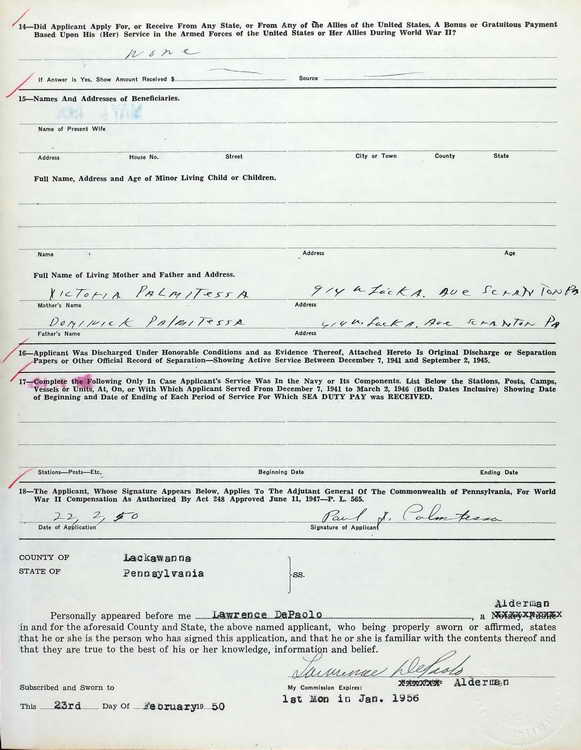 14—Did Applicant Apply For, or Receive From Any State, or From Any of the Allies of the United States, A Bonus or Gratuitous Payment
Based Upon His (Her) Service in the Armed Forces of the United States or Her Allies During World War II?
none
If Answer is Yes, Show Amount Received $ Source
15—Names And Addresses of Beneficiaries.
Name of Present Wife
Address House No. Street City or Town County State
Full Name, Address and Age of Minor Living Child or Children.
Name Address Age
Full Name of Living Mother and Father and Address.
Victoria Palmitessa 914 W. Lack A. Ave Scranton Pa
Mother's Name Address
Dominick Palmitessa 914 W. Lack A. Ave Scranton Pa
Father's Name Address
16—Applicant Was Discharged Under Honorable Conditions and as Evidence Thereof, Attached Hereto Is Original Discharge or Separation
Papers or Other Official Record of Separation—Showing Active Service Between December 7, 1941 and September 2, 1945.
17—Complete the Following Only In Case Applicant's Service Was In the Navy or Its Components. List Below the Stations, Posts, Camps,
Vessels or Units, At, On, or With Which Applicant Served From December 7, 1941 to March 2, 1946 (Both Dates Inclusive) Showing Date
of Beginning and Date of Ending of Each Period of Service For Which SEA DUTY PAY was RECEIVED.
Stations—Posts—Etc. Beginning Date Ending Date
18—The Applicant, Whose Signature Appears Below, Applies To The Adjutant General Of The Commonwealth of Pennsylvania, For World
War II Compensation As Authorized By Act 248 Approved June 11, 1947—P. L. 565.
22, 2, 50 Paul J. Palmitessa
Date of Application Signature of Applicant
COUNTY OF Lackawanna
STATE OF Pennsylvania ss.
Alderman
Personally appeared before me Lawrence DePaolo, a Notary Public
in and for the aforesaid County and State, the above named applicant, who being properly sworn or affirmed, states
that he or she is the person who has signed this application, and that he or she is familiar with the contents thereof and
that they are true to the best of his or her knowledge, information and belief.
Lawrence DePaolo
Alderman
Subscribed and Sworn to My Commission Expires:
This 23rd Day Of February 19 50 1st Mon in Jan. 1956